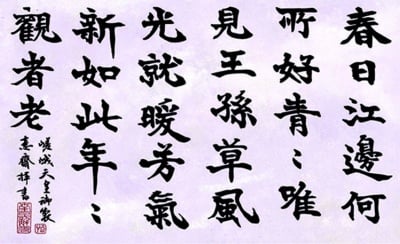 春日江邊何
所好青〻唯
見王孫草風
光就暖芳氣
新如此年〻
觀者老
嵯峨天皇御製
齋書